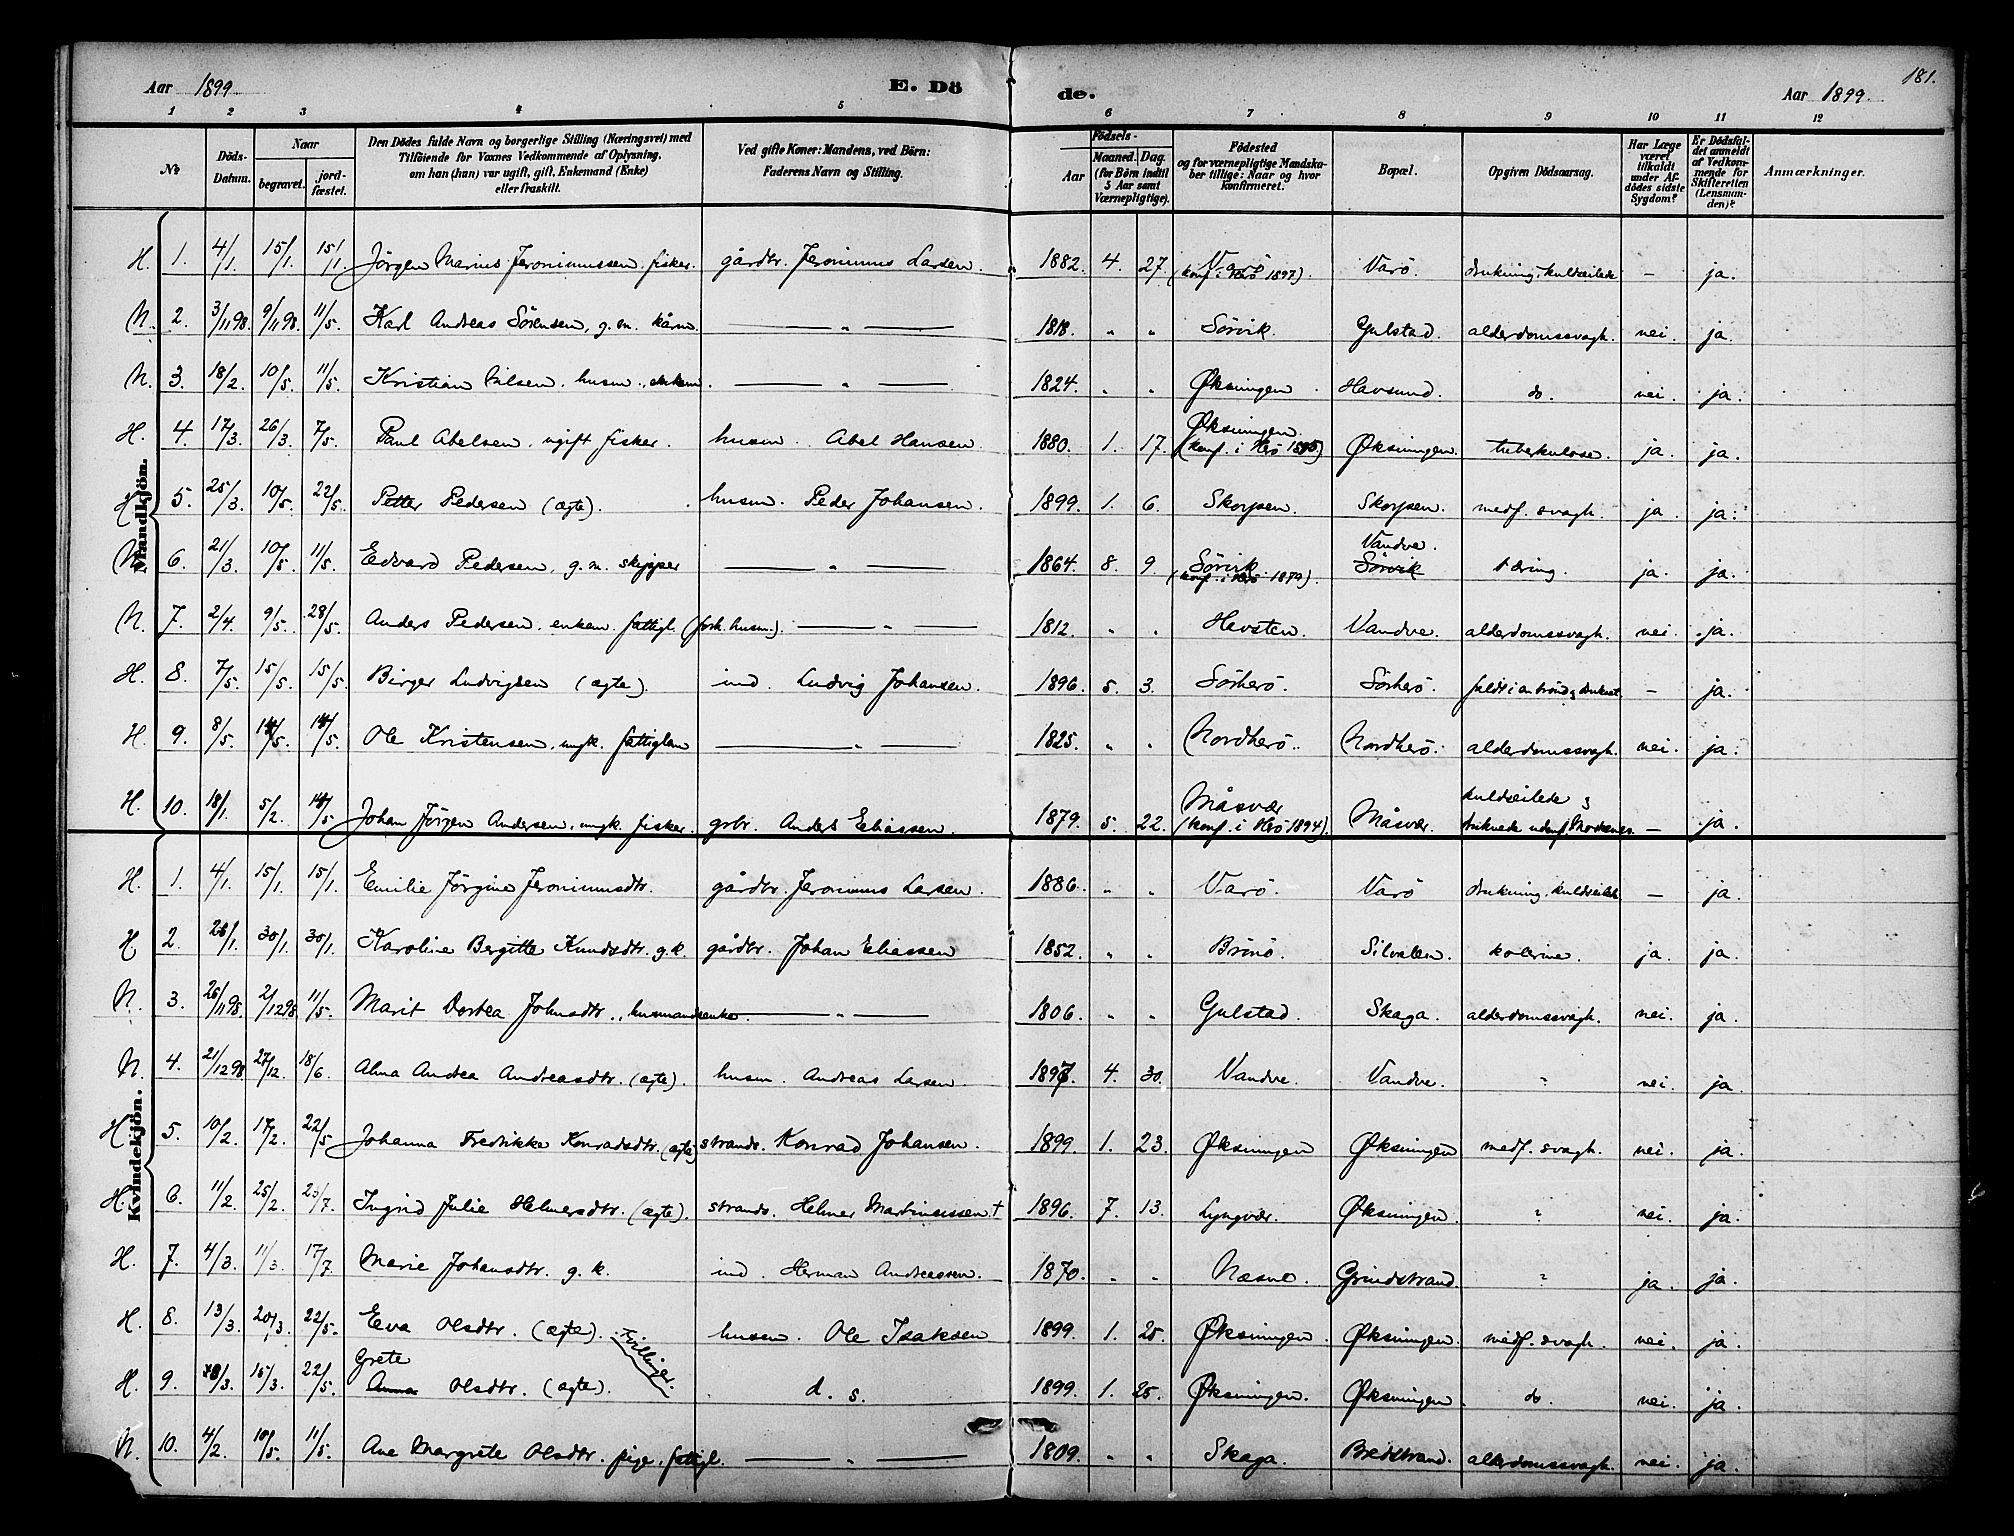 181.
Aar 1899 E. Dö de. Aar 1899.
1 2 3 4 5 6 7 8 9 10 11 12
№ Döds-Datum. Naar begravet. jordfæstet. Den Dödes fulde Navn og borgerlige Stilling (Næringsvei) med Tilföiende for Voxnes Vedkommende af Oplysning, om han (hun) var ugift, gift, Enkemand (Enke) eller fraskilt. Ved gifte Koner: Mandens, ved Börn: Faderens Navn og Stilling. Födsels- Aar Maaned. Dag. (for Börn indtil 5 Aar samt Værnepligtige). Födested og for værnepligtige Mandskaber tillige: Naar og hvor konfirmeret. Bopæl. Opgiven Dödsaarsag. Har Læge været tilkaldt under Afdödes sidste Sygdom? Er Dödsfaldet anmeldt af Vedkommende for Skifteretten (Lensmanden)? Anmærkninger.
Mandkjön.
H. 1. 4/1. 15/1. 15/1 Jörgen Marius Jeronimussen, fisker. gårdbr. Jeronimus Larsen. 1882. 4. 27. Varö (konf. i Herö 1897). Varö. drukning, kuldseilede — ja.
N. 2. 3/11 98. 9/11 98. 11/5. Karl Andreas Sörensen, g. m. kårm. — " — 1818. " " Sörvik. Gulstad. alderdomssvagh. nei. ja.
N. 3. 18/2. 10/5. 11/5. Kristian Nilsen, husm., enkem. — " — 1824. " " Øksningen. Havsund. do. nei. ja.
H. 4. 17/3. 26/3. 7/5. Paul Abelsen, ugift fisker. husm. Abel Hansen. 1880. 1. 17. Øksningen (konf. i Herö 1895) Øksningen. tuberkulose. ja. ja.
H. 5. 25/3. 10/5. 22/5. Petter Pedersen (ægte). husm. Peder Johansen. 1899. 1. 6. Skorpen. Skorpen. medf. svagh. ja. ja.
N. 6. 21/3. 10/5. 11/5. Edvard Pedersen, g. m. skipper — " — 1864. 8. 9. Sörvik (konf. i Herö 1879). Vandve. Sörvik tæring. ja. ja.
N. 7. 2/4. 9/5. 28/5. Anders Pedersen, enkem. fattigl. (forh. husm.). — " — 1812. " " Havsten. Vandve. alderdomssvagh. nei. ja.
H. 8. 7/5. 15/5. 15/5. Birger Ludvigsen (ægte). ind. Ludvig Johansen. 1896. 5. 3. Sörherö. Sörherö. faldt i en brönd & druknet. — ja.
H. 9. 8/5. 14/5. 14/5. Ole Kristensen, ungk. fattiglem — " — 1825. " " Nordherö. Nordherö. alderdomssvagh. nei. ja.
H. 10. 18/1. 5/2. 14/5. Johan Jörgen Andersen, ungk. fisker. grbr. Anders Eliassen. 1879. 5. 22. Måsvær (konf. i Herö 1894). Måsvær. kuldseilede & druknede — ja.
Kvindekjön.
H. 1. 4/1. 15/1. 15/1. Emilie Jörgine Jeronimusdtr. gårdbr. Jeronimus Larsen. 1886. " " Varö. Varö drukning, kuldseilede — ja.
H 2. 26/1. 30/1. 30/1. Karoline Bergitte Knudsdtr. g. k. gårdbr. Johan Eliassen 1852. " " Brönö. Silvalen. kolerine. ja. ja.
N. 3. 26/11 98. 2/12 98. 11/5. Marit Dortea Johnsdtr., husmandsenke. — " — 1806. " " Gulstad. Skaga. alderdomssvagh. nei. ja.
N. 4. 21/12 98 27/12. 18/6. Alma Andrea Andreasdtr. (ægte). husm. Andreas Larsen 1897. 4. 30. Vandve. Vandve. ? nei. ja.
H 5. 10/2. 17/2. 22/5. Johanna Fredrikke Konradsdtr. (ægte) strands. Konrad Johansen. 1899. 1. 23. Øksningen Øksningen medf. svagh. nei. ja.
H. 6. 11/2. 25/2. 23/7. Ingrid Julie Helmersdtr. (ægte). strands. Helmer Martinussen † 1896. 7. 13. Lyngvær. Øksningen. ? nei. ja.
H. 7. 4/3. 11/3. 17/7. Marie Johansdtr. g. k. ind. Herman Andreassen. 1870. " " Næsne. Grindstrand. ? ja. ja.
H. 8. 13/3. 20/3. 22/5. Eva Olsdtr. (ægte). Tvillinger. husm. Ole Isaksen 1899. 1. 25. Øksningen. Øksningen. medf. svagh. nei. ja.
H. 9. 10/3. 15/3. 22/5. Grete Anna Olsdtr. (ægte). d. s. 1899. 1. 25. Øksningen. Øksningen. do nei. ja.
N. 10. 4/2. 10/5. 11/5. Ane Margrete Olsdtr. pige, fattigl. — " — 1809. " " Skaga. Bredstrand. alderdomssvagh. nei. ja.